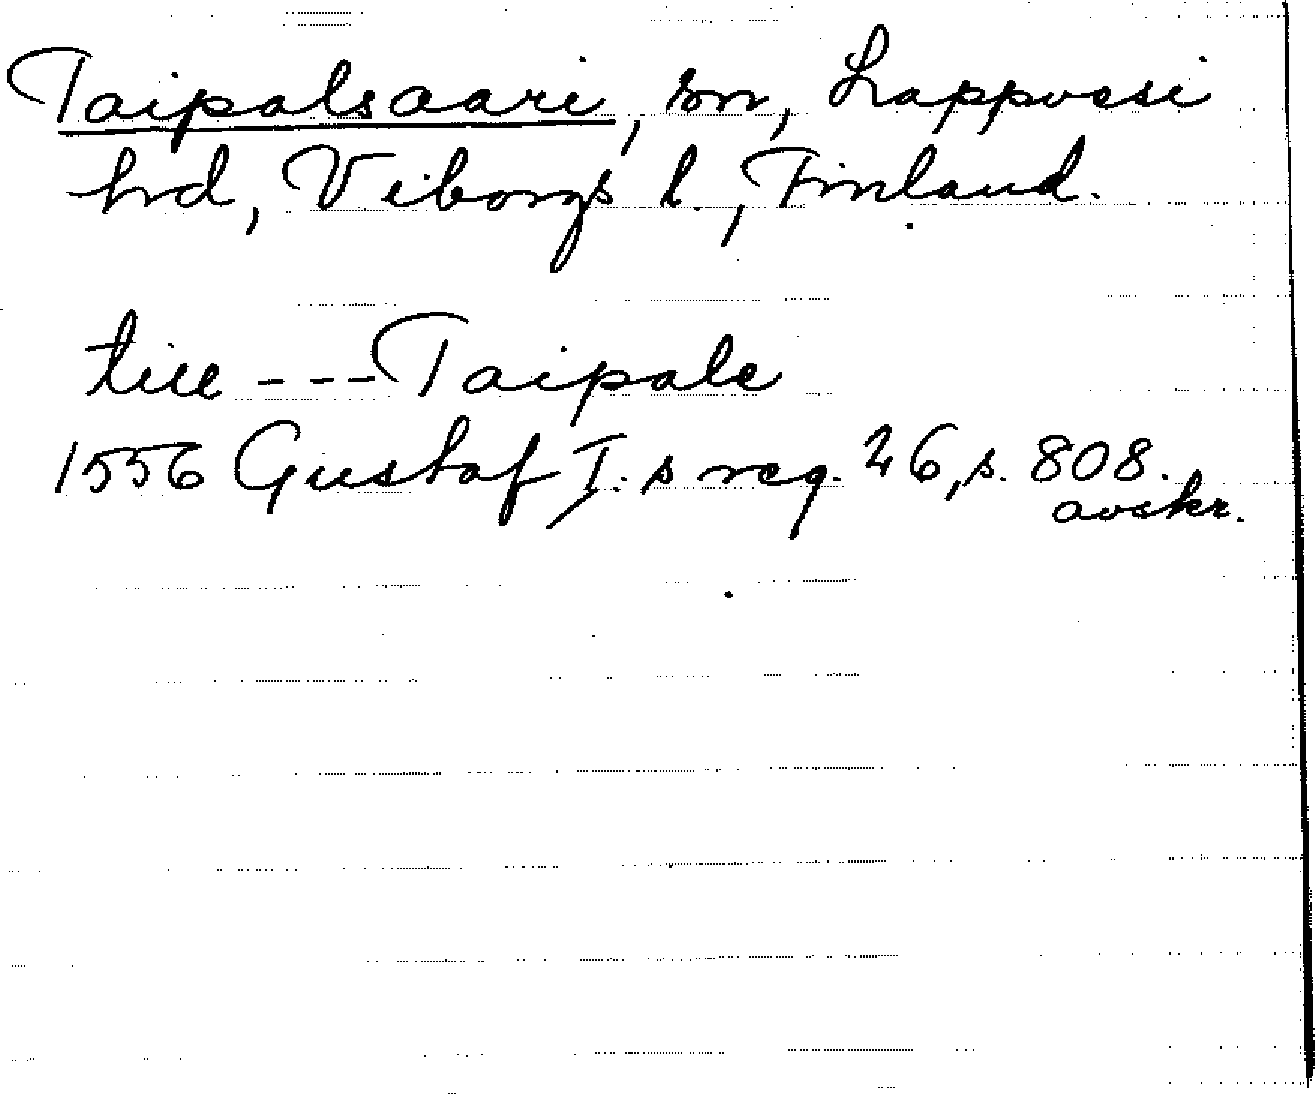 Taipalsaari, sn, Lappvesi
hrd, Viborgs l., Finland.
till --- Taipale
1556 Gustaf I.s reg. 26, s. 808.
avskr.